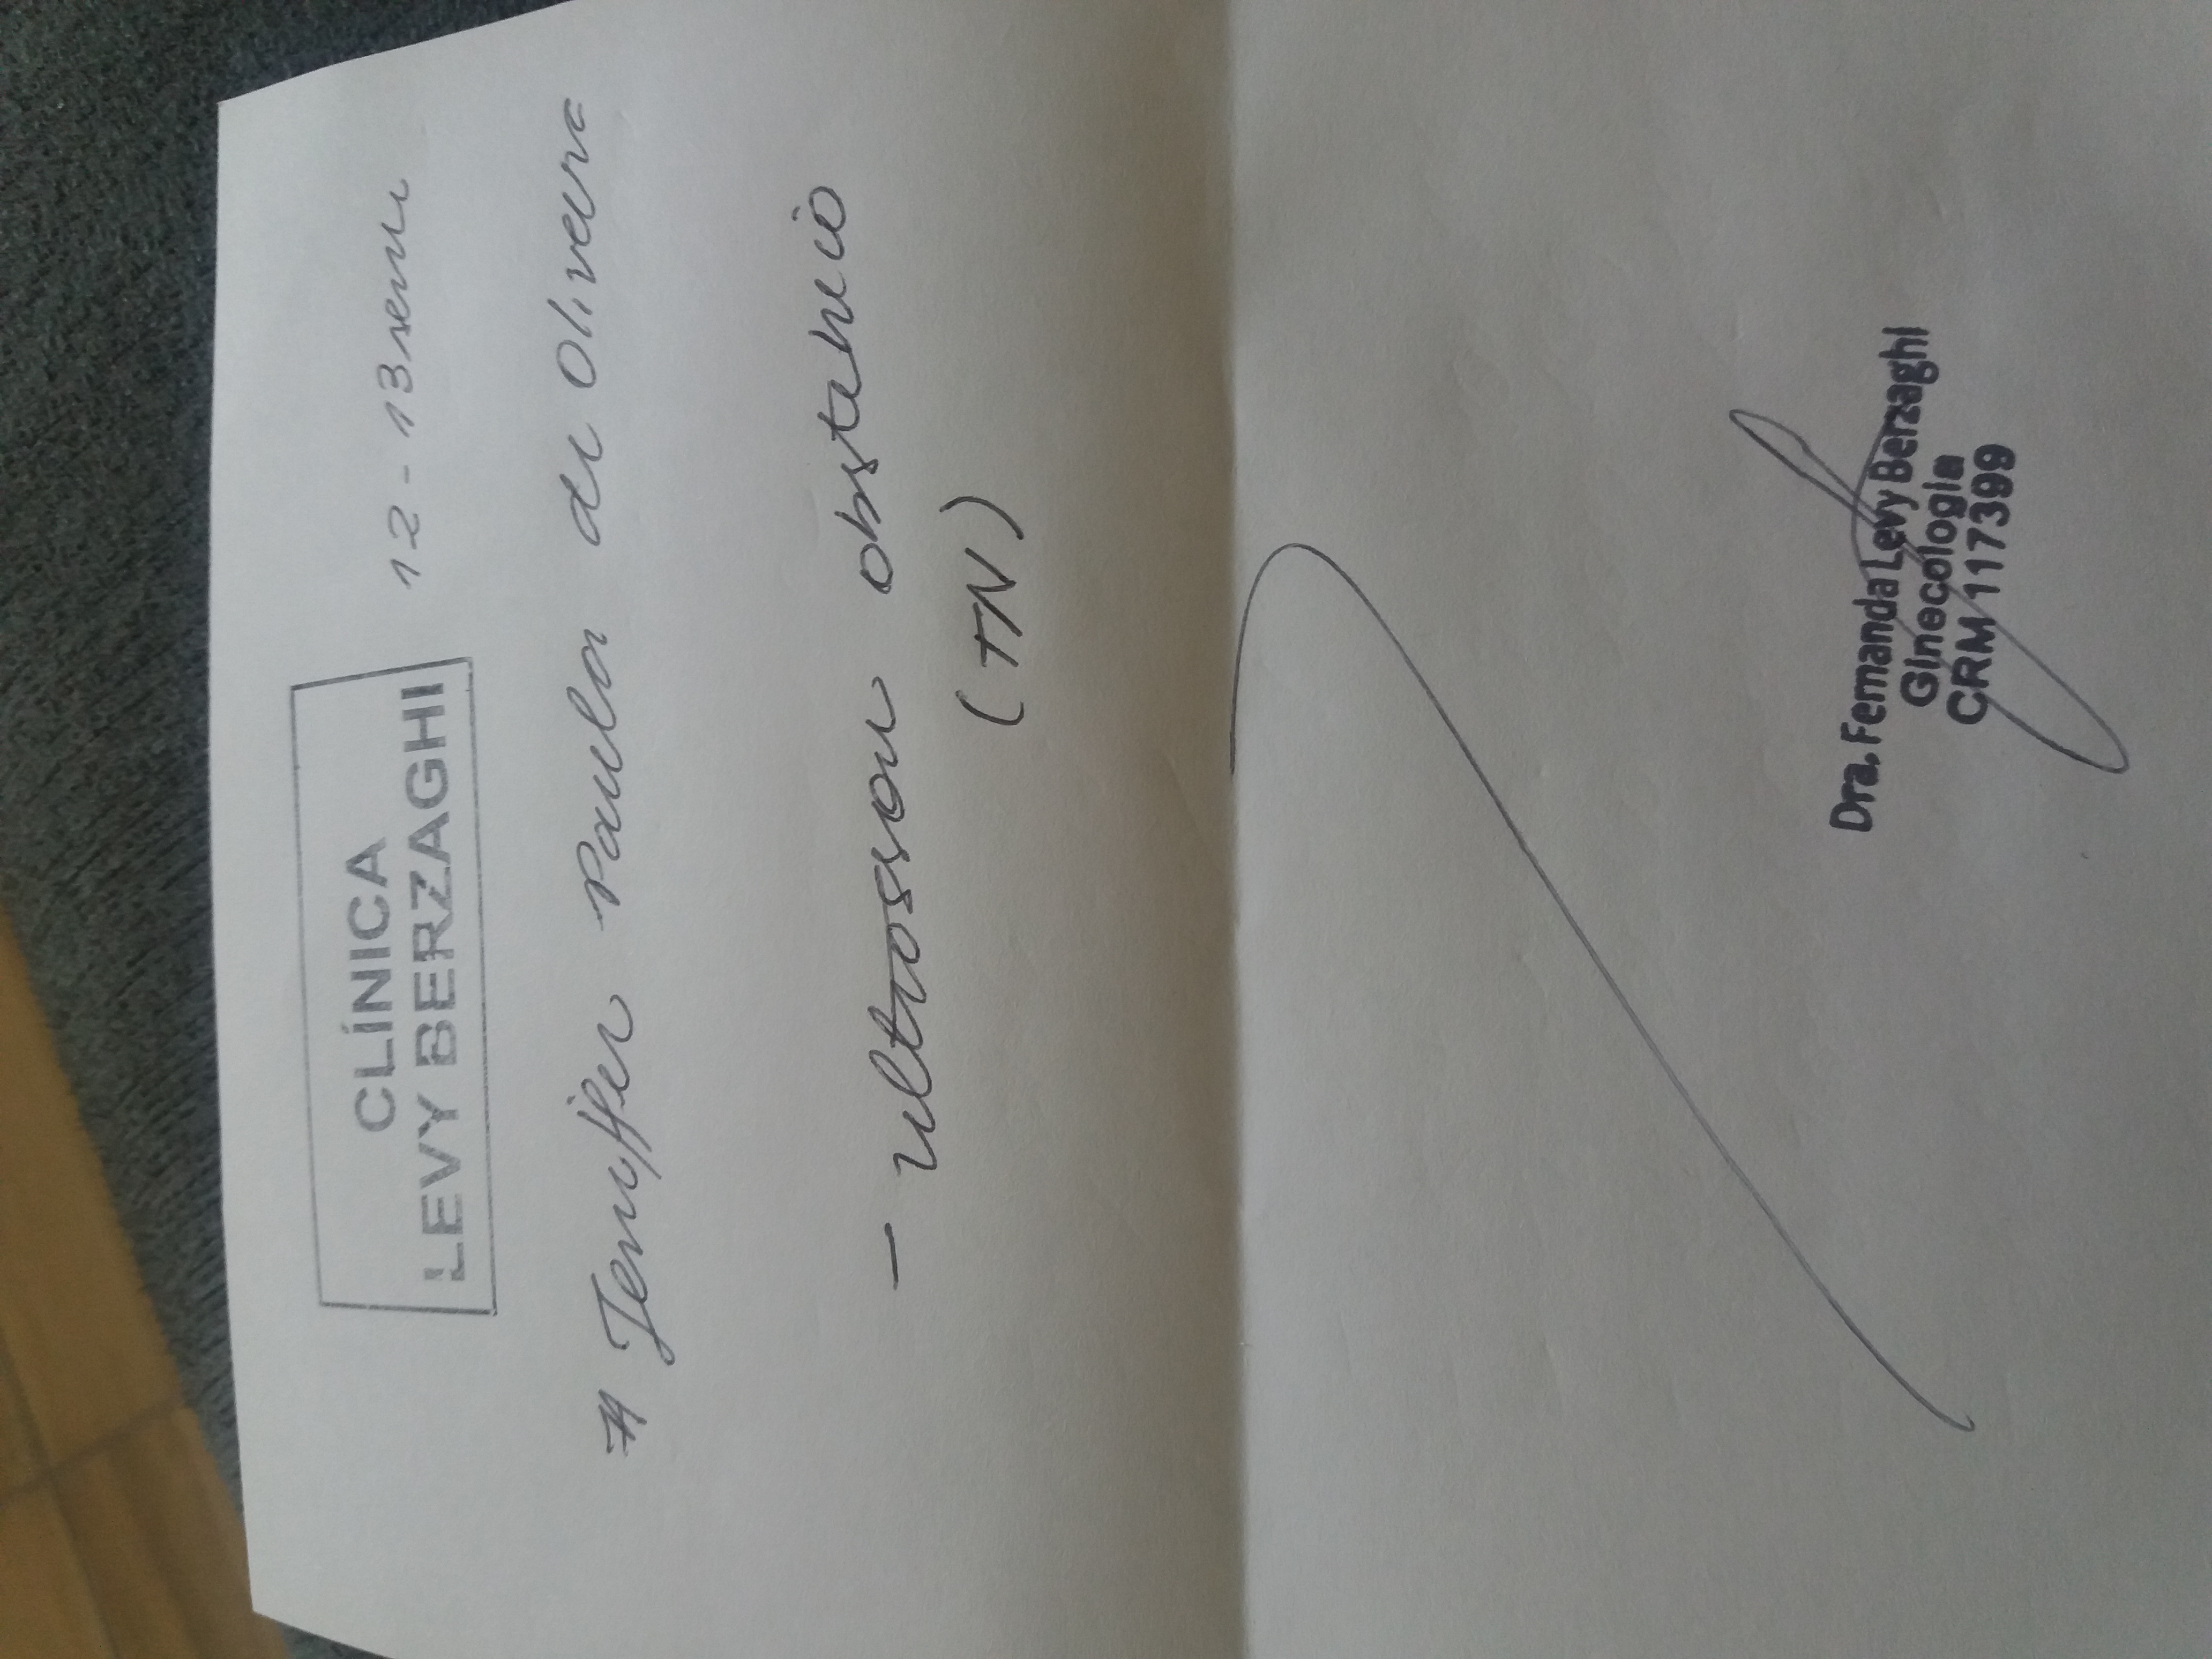 CLÍNICA
LEVY BERZAGHI
12 - 13 sem
# Jeniffer Paula de Oliveira
- ultrassom obstetrico
(TN)
Dra. Fernanda Levy Berzaghi
Ginecologia
CRM 117399